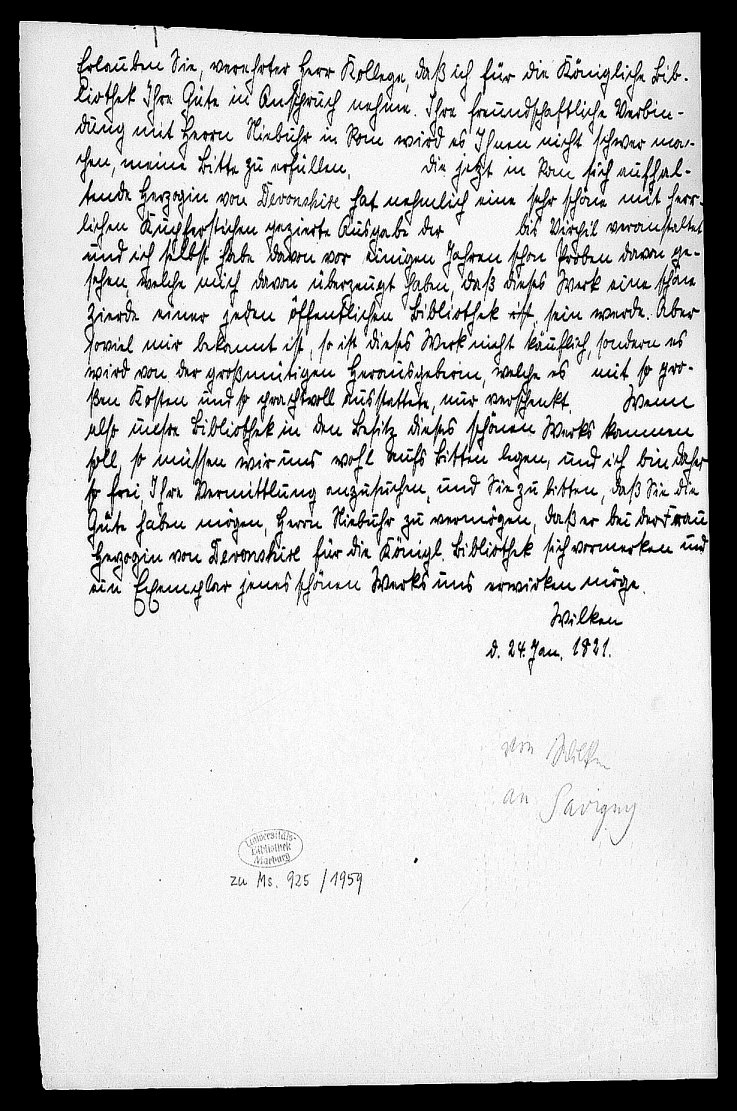 Erlauben Sie, verehrter Herr Kollege, daß ich für die Königliche Bib-
liothek Ihre Güte in Anspruch nehme. Ihre freundschaftliche Verbin-
dung mit Herrn Niebuhr in Rom wird es Ihnen nicht schwer ma-
chen, meine Bitte zu erfüllen, die jetzt in Rom sich aufhal-
tende Herzogin von Devonshire hat nehmlich eine sehr schöne mit herr-
lichen Kupferstichen gezierte Ausgabe der des Virgil veranstaltet
und ich selbst habe davon vor einigen Jahren schon Proben davon ge-
sehen, welche mich davon überzeugt haben, daß dieses Werk eine schöne
Zierde einer jeden öffentlichen Bibliothek ist, sein werde. Aber
soviel mir bekannt ist, so ist dieses Werk nicht käuflich, sondern es
wird von der großmütigen Herausgeberin, welche es mit so gro-
ßen Kosten und so prachtvoll ausstattete, nur verschenkt. Wenn
also unsre Bibliothek in den Besitz dieses schönen Werks kommen
soll, so müssen wir uns wohl aufs Bitten legen, und ich bin daher
so frei, Ihre Vermittlung anzusuchen, und Sie zu bitten, daß Sie die
Güte haben mögen, Herrn Niebuhr zu vermögen, daß er bei der Frau
Herzogin von Devonshire für die Königl. Bibliothek sich vormerken und
ein Exemplar jenes schönen Werks uns erwirken möge.
Wilken
d. 24. Jan. 1821.
von Wilken
an Savigny
Universitäts-
Bibliothek
Marburg
zu Ms. 925 / 1959